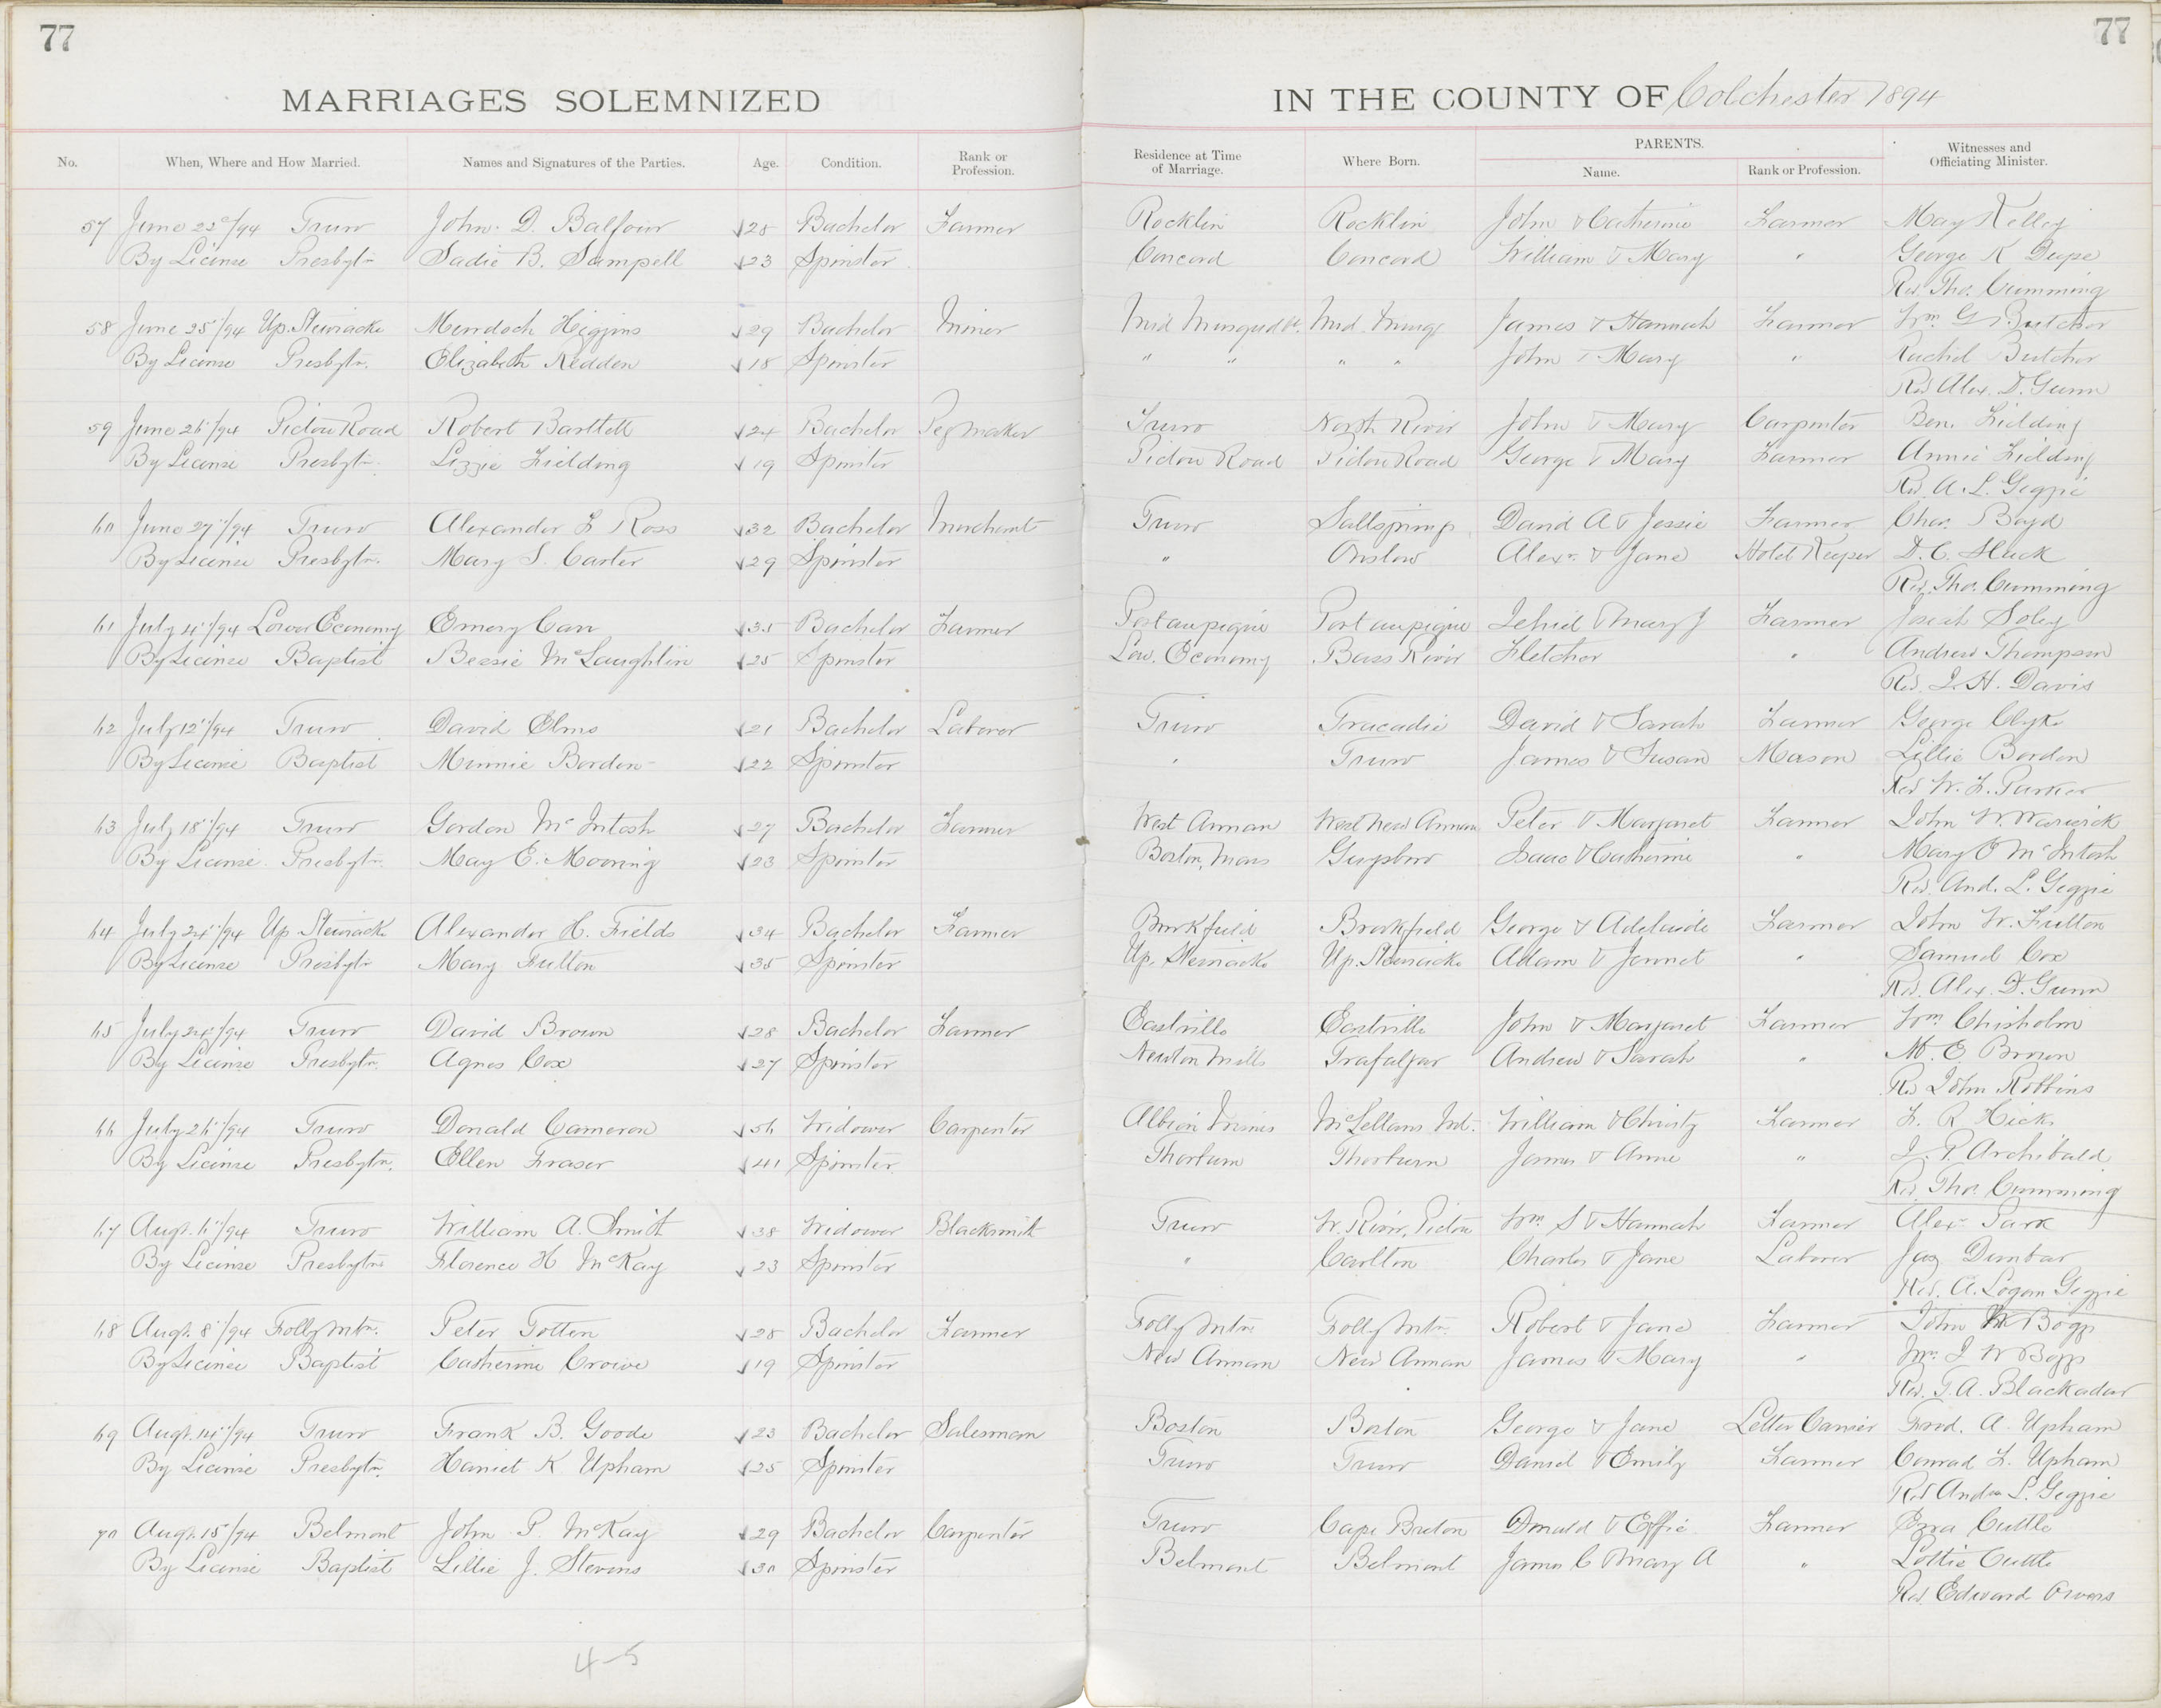 77
77
MARRIAGES SOLEMNIZED
IN THE COUNTY OF Colchester 1894
No. When, Where and How Married. Names and Signatures of the Parties. Age. Condition. Rank or Profession. Residence at Time of Marriage. Where Born. PARENTS. Name. Rank or Profession. Witnesses and Officiating Minister.
57 June 22/94 Truro John. D. Balfour 28 Bachelor Farmer Rocklin Rocklin John & Catherine Farmer May Kelley
By License Presbytn Sadie B. Sampell 23 Spinster Concord Concord William & Mary " George K
Rev. Tho. Cumming
58 June 25/94 Up. Stewiacke Murdoch Higgins 29 Bachelor Miner Mid Musquodt. Mid Musq James & Hannah Farmer Wm. G Butcher
By License Presbytn. Elizabeth Redden 18 Spinster " " " " John & Mary " Rachel Butcher
Rev Alex. D. Gunn
59 June 26/94 Pictou Road Robert Bartlett 24 Bachelor Peg maker Truro North River John & Mary Carpenter Ben. Fielding
By License Presbytn. Lizzie Fielding 19 Spinster Pictou Road Pictou Road George & Mary Farmer Annie Fielding
Rev. A. L. Geggie
60 June 27/94 Truro Alexander F Ross 32 Bachelor Merchant Truro Saltsprings David A & Jessie Farmer Chas. Boyd
By License Presbytn. Mary S. Carter 29 Spinster " Onslow Alexr. & Jane Hotel Keeper D. C.
Rev. Tho. Cumming
61 July 4/94 Lower Economy Emery Carr 35 Bachelor Farmer Portaupique Portaupique Jehiel & Mary J Farmer Josiah Soley
By License Baptist Bessie McLaughlin 25 Spinster Low. Economy Bass River Fletcher " Andrew Thompson
Rev. J. H. Davis
62 July 12/94 Truro David Elms 21 Bachelor Laborer Truro Tracadie David & Sarah Farmer George Clyke
By License Baptist Minnie Borden 22 Spinster " Truro James & Susan Mason Lillie Borden
Rev W. F. Parker
63 July 18/94 Truro Gordon McIntosh 27 Bachelor Farmer West Annan West New Annan Peter & Margaret Farmer John W. Warwick
By License Presbytn. May E. Mooring 23 Spinster Boston, Mass Guysboro Isaac & Catherine " Mary O McIntosh
Rev. And. L. Geggie
64 July 24/94 Up Stewiacke Alexander H. Fields 34 Bachelor Farmer Brookfield Brookfield George & Adelaide Farmer John W. Fulton
By License Presbytn Mary Fulton 35 Spinster Up. Stewiacke Up. Stewiacke Adam & Jennet " Samuel Cox
Rev. Alex. D. Gunn
65 July 24/94 Truro David Brown 28 Bachelor Farmer Eastville Eastville John & Margaret Farmer Wm Chisholm
By License Presbytn. Agnes Cox 27 Spinster Newton Mills Trafalgar Andrew & Sarah " M. E Brown
Rev John Robbins
66 July 26/94 Truro Donald Cameron 56 Widower Carpenter Albion Mines McLellans Mt. William & Christy Farmer F. R Hicks
By License Presbytn. Ellen Fraser 41 Spinster. Thorburn Thorburn James & Anne " J. P. Archibald
Rev. Tho. Cumming
67 Augt. 6/94 Truro William A. Smith 38 Widower Blacksmith Truro W. River, Pictou Wm S & Hannah Farmer Alex. Park
By License Presbytn Florence H McKay 23 Spinster " Carlton Charles & Jane Laborer Jas Dunbar
Rev. A. Logan Geggie
68 Augt. 8/94 Folly Mtn. Peter Totten 28 Bachelor Farmer Folly Mtn Folly Mtn Robert & Jane Farmer John W Boggs
By License Baptist Catherine Crowe 19 Spinster New Annan New Annan James & Mary " Mrs. J W Boggs
Rev. T. A. Blackadar
69 Augt. 14/94 Truro Frank B. Goode 23 Bachelor Salesman Boston Boston George & Jane Letter Carrier Fred. A. Upham
By License Presbytn. Harriet K Upham 25 Spinster Truro Truro Daniel & Emily Farmer Conrad F. Upham
Rev Andw L. Geggie
70 Augt. 15/94 Belmont John P. McKay 29 Bachelor Carpenter Truro Cape Breton Donald & Effie Farmer Ezra Cuttle
By License Baptist Lillie J. Stevens 30 Spinster Belmont Belmont James C & Mary A " Lottie Cuttle
Rev. Edward Owens
4-5